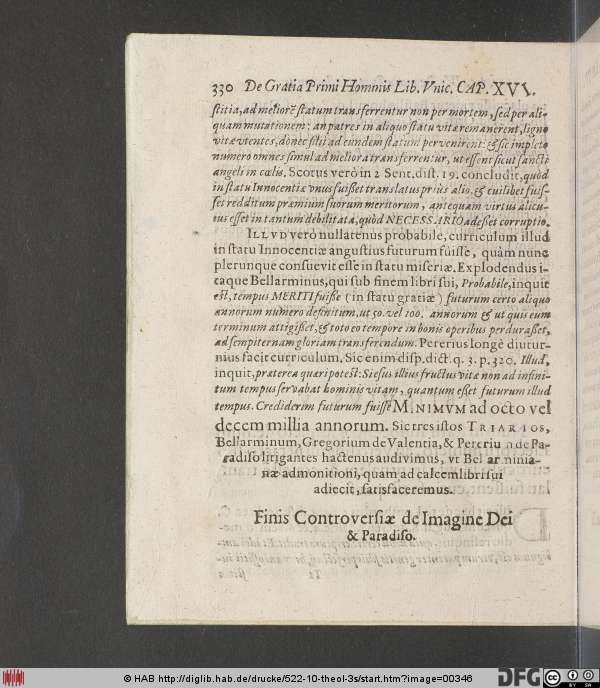 330 De Gratia Primi Hominis Lib. Vnic. CAP. XVI.
ſtitia, ad meliorē ſtatum transferrentur non per mortem, ſed per ali-
quam mutationem: an patres in aliquo ſtatu vitæ remanerent, ligno
vitæ vtentes, donec filii ad eundem ſtatum pervenirent: & ſic impleto
numero omnes ſimul ad meliora transferrentur, ut eſſent ſicut ſancti
angeli in cælis. Scotus verò in 2 Sent. diſt. 19. concludit, quòd
in ſtatu Innocentiæ vnus fuiſſet translatus priùs alio, & cuilibet fuiſ-
ſet redditum præmium ſuorum meritorum, antequam virtus alicu-
ius eſſet in tantum debilitata, quòd NECESSARIO adeſſet corruptio.
ILLVD verò nullatenus probabile, curriculum illud
in ſtatu Innocentiæ anguſtius futurum fuiſſe, quàm nunc
plerunque conſuevit eſſe in ſtatu miſeriæ. Explodendus i-
taque Bellarminus, qui ſub finem libri ſui, Probabile, inquit
eſt, tempus MERITI fuiſſe (in ſtatu gratiæ) futurum certo aliquo
annorum numero definitum, ut 50. vel 100. annorum & ut qui eum
terminum attigiſſet, & toto eo tempore in bonis operibus perduraſſet,
ad ſempiternam gloriam transferendum. Pererius longè diutur-
nius facit curriculum. Sic enim diſp. dict. q. 3. p. 320. Illud,
inquit, præterea quæri poteſt: Si eſus illius fructus vitæ non ad infini-
tum tempus ſervabat hominis vitam, quantum eſſet futurum illud
tempus. Crediderim futurum fuiſſe MINIMVM ad octo vel
decem millia annorum. Sic tres iſtos TRIARIOS,
Bellarminum, Gregorium de Valentia, & Pereriu de Pa-
radiſo litigantes hactenus audivimus, vt Bel ar minia-
næ admonitioni, quam ad calcem libri ſui
adiecit, ſatisfaceremus.
Finis Controverſiæ de Imagine Dei
& Paradiſo.
© HAB http://diglib.hab.de/drucke/522-10-theol-3s/start.htm?image=00346
DFG
CC BY SA